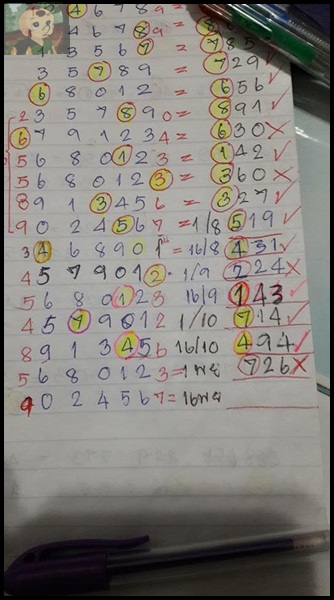 4 6 7 8 9 =
4 6 7 8 9 =
1 3 5 6 7 = 785 ✓
3 5 7 8 9 = 729 ✓
6 8 0 1 2 = 656 ✓
2 3 5 7 8 9 0 = 891 ✓
6 7 9 1 2 3 4 = 630 ×
5 6 8 0 1 2 3 = 142 ✓
5 6 8 0 1 2 3 = 360 ×
8 9 1 3 4 5 6 = 327 ✓
9 0 2 4 5 6 7 = 1/8 519 ✓
3 4 6 8 9 0 1 = 16/8 431 ✓
4 5 7 9 0 1 2 · 1/9 224 ×
5 6 8 0 1 2 3 16/9 143 ✓
4 5 7 9 0 1 2 1/10 714 ✓
8 9 1 3 4 5 6 16/10 494 ✓
5 6 8 0 1 2 3 = 1พย 726 ×
9 0 2 4 5 6 7 = 16พย